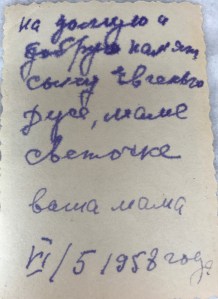 на долгую и
добрую память
сыну Евгенью
Дусе, маме
Светочке
ваша мама
VI/5 1958 года.